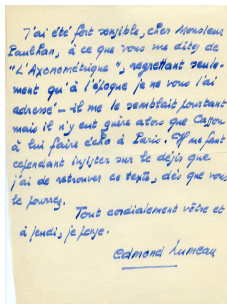 J'ai été fort sensible, cher Monsieur
Paulhan, à ce que vous me dites de
"L'Axonométrique", regrettant seule-
ment qu'à l'époque je ne vous l'ai
adressé — il me le semblait pourtant
mais il n'y eut guère alors que Cassou
à lui faire écho à Paris. Il me faut
cependant insister sur le désir que
j'ai de retrouver ce texte, dès que vous
le pourrez.
Tout cordialement vôtre et
à jeudi, je pense.
Edmond Humeau